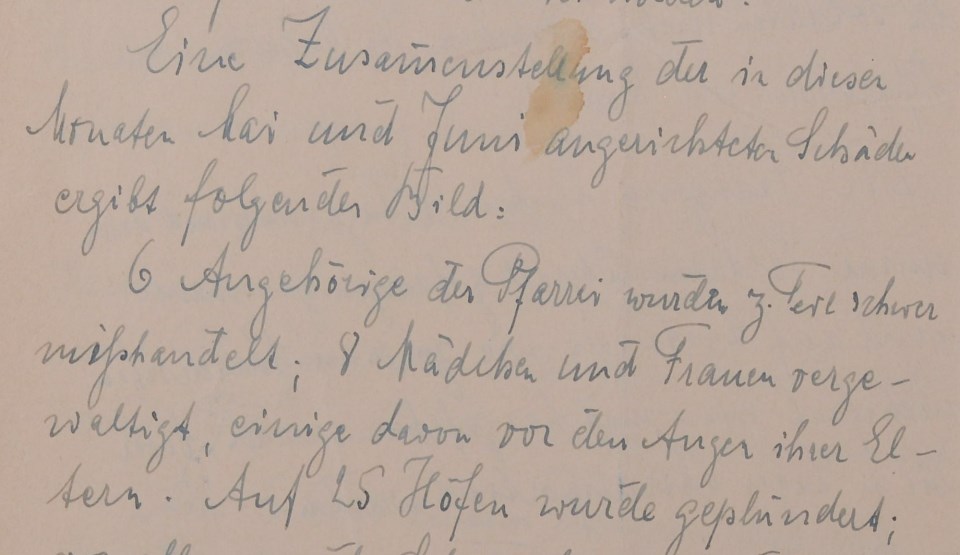 Eine Zusammenstellung der in diesen
Monaten Mai und Juni angerichteten Schäden
ergibt folgendes Bild:
6 Angehörige der Pfarrei wurden z. Teil schwer
mißhandelt; 8 Mädchen und Frauen verge-
waltigt, einige davon vor den Augen ihrer El-
tern. Auf 25 Höfen wurde geplündert;